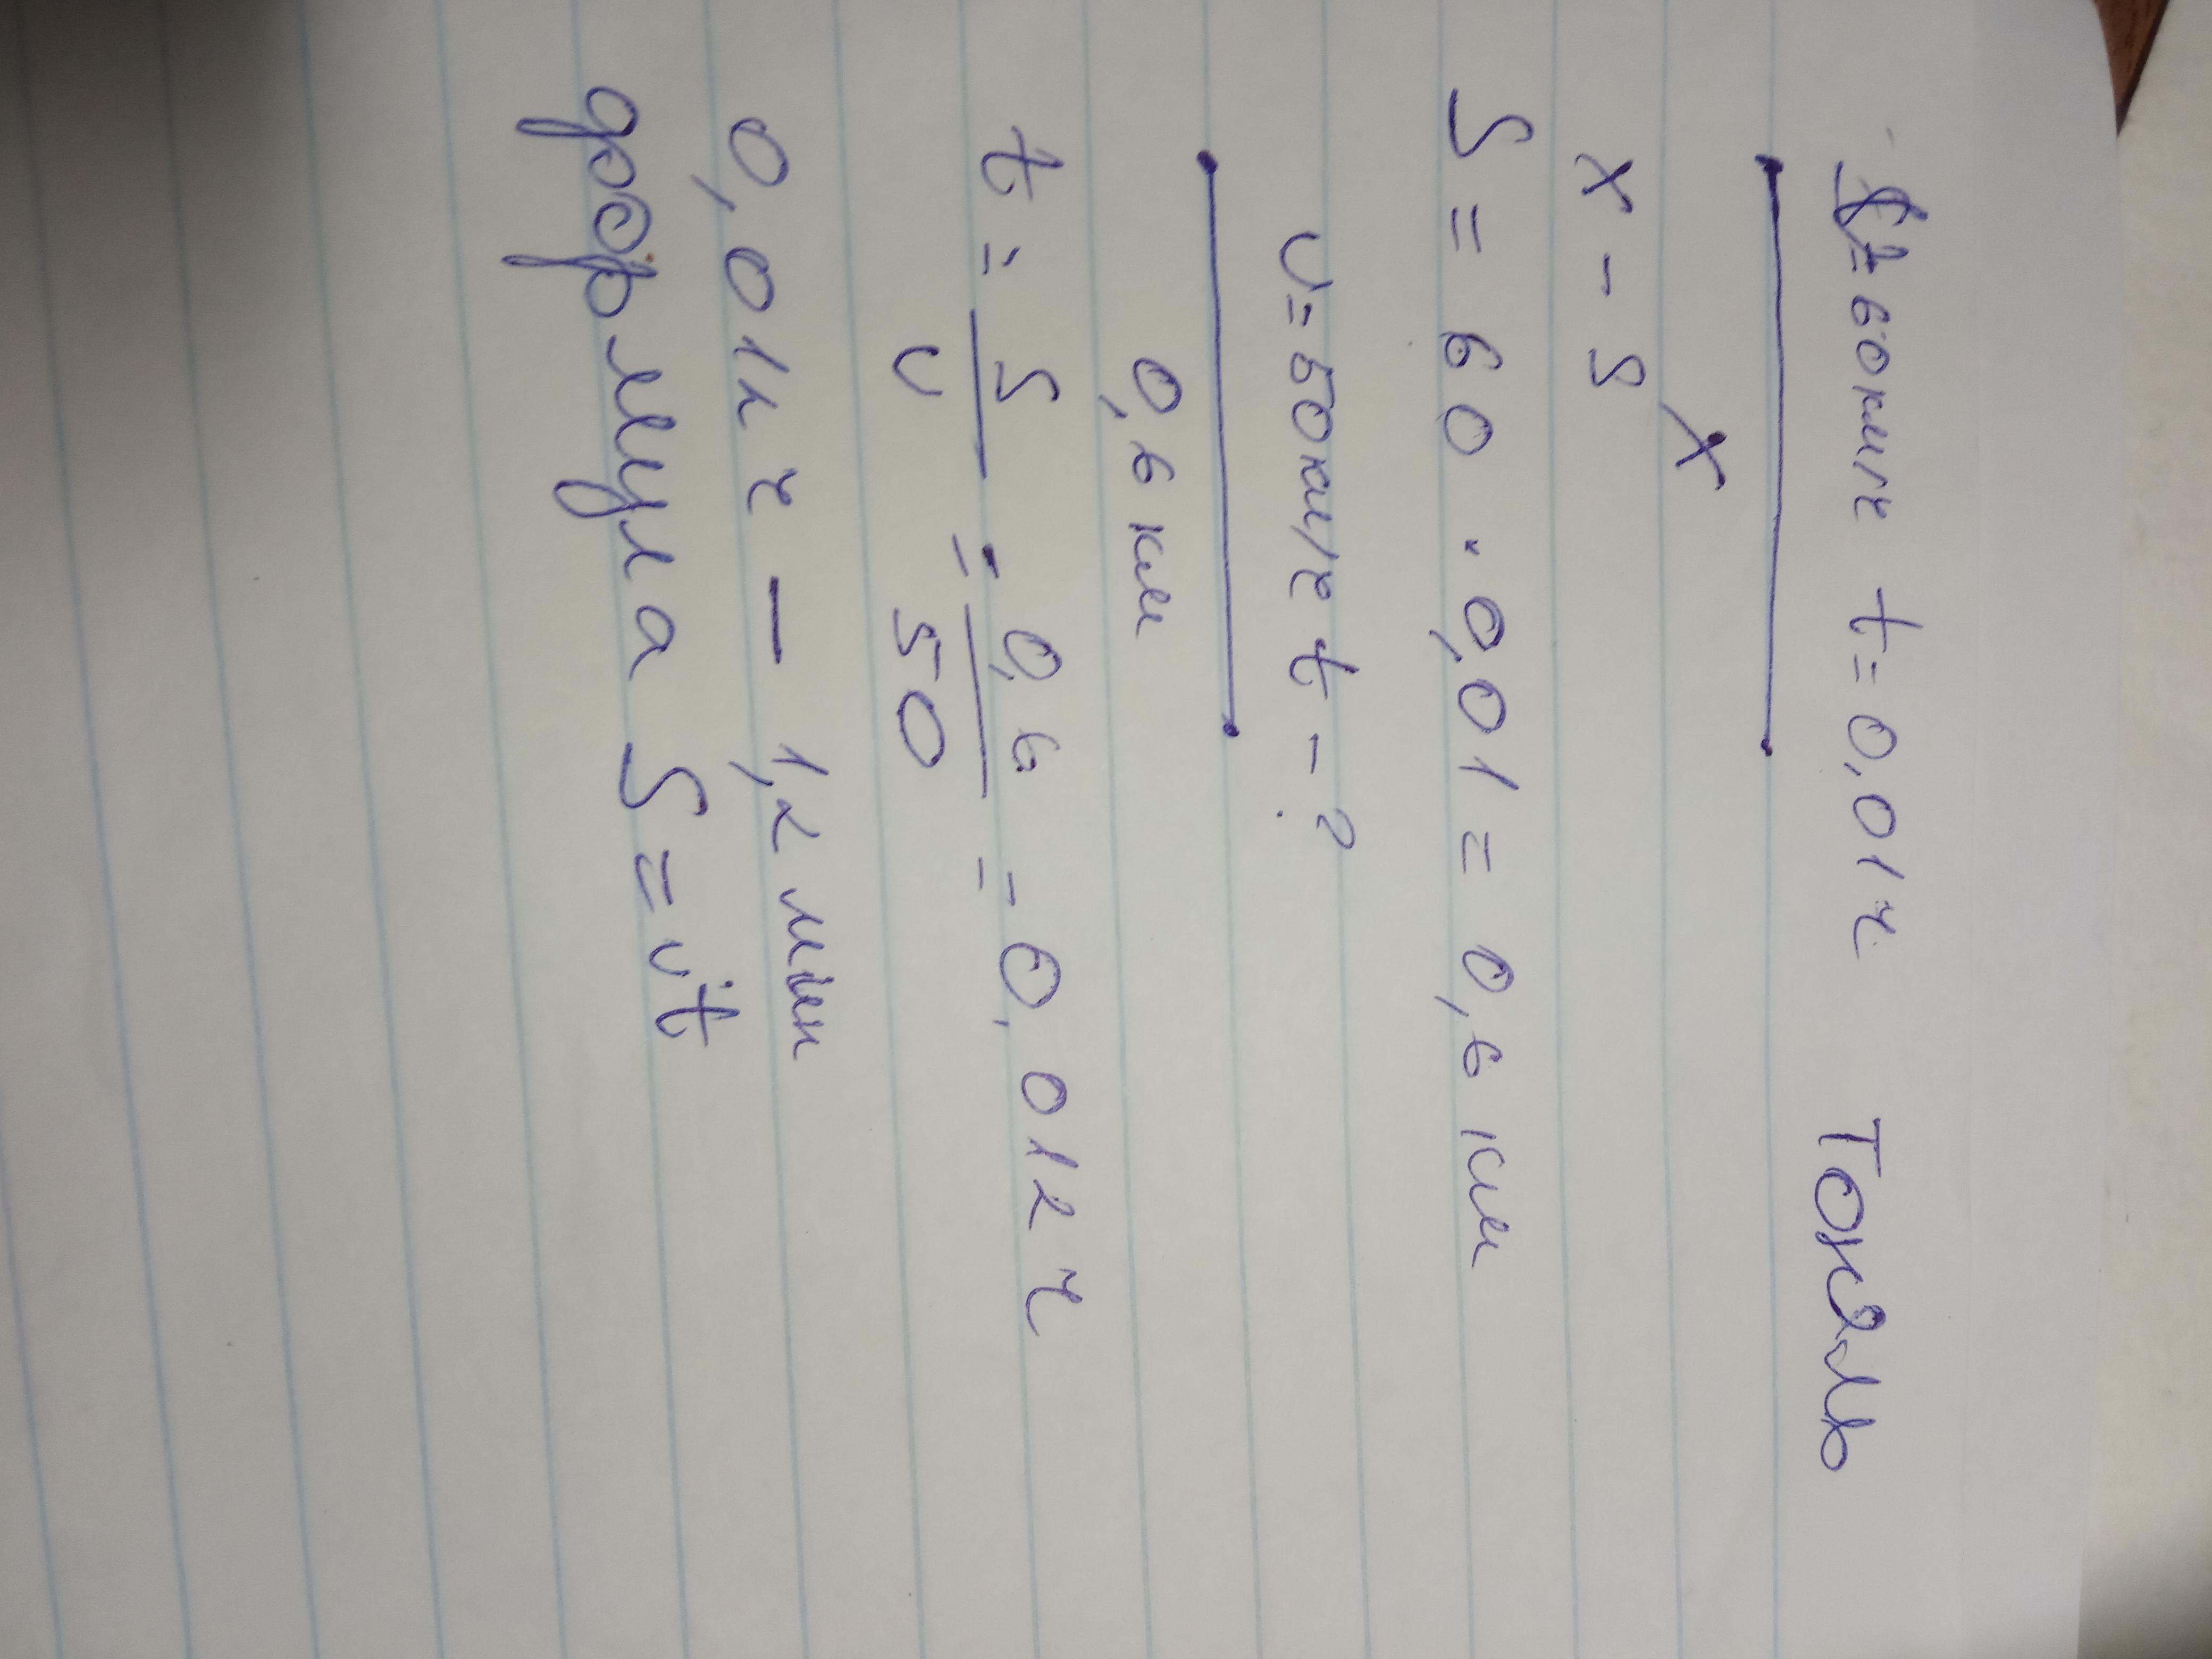 = 60км/ч t=0,01ч
x
x - S
S = 60 · 0,01 = 0,6 км
v=50км/ч t - ?
0,6 км
t = S/v = 0,6/50 = 0,012ч
0,012ч - 1,2 мин
формула S=vt